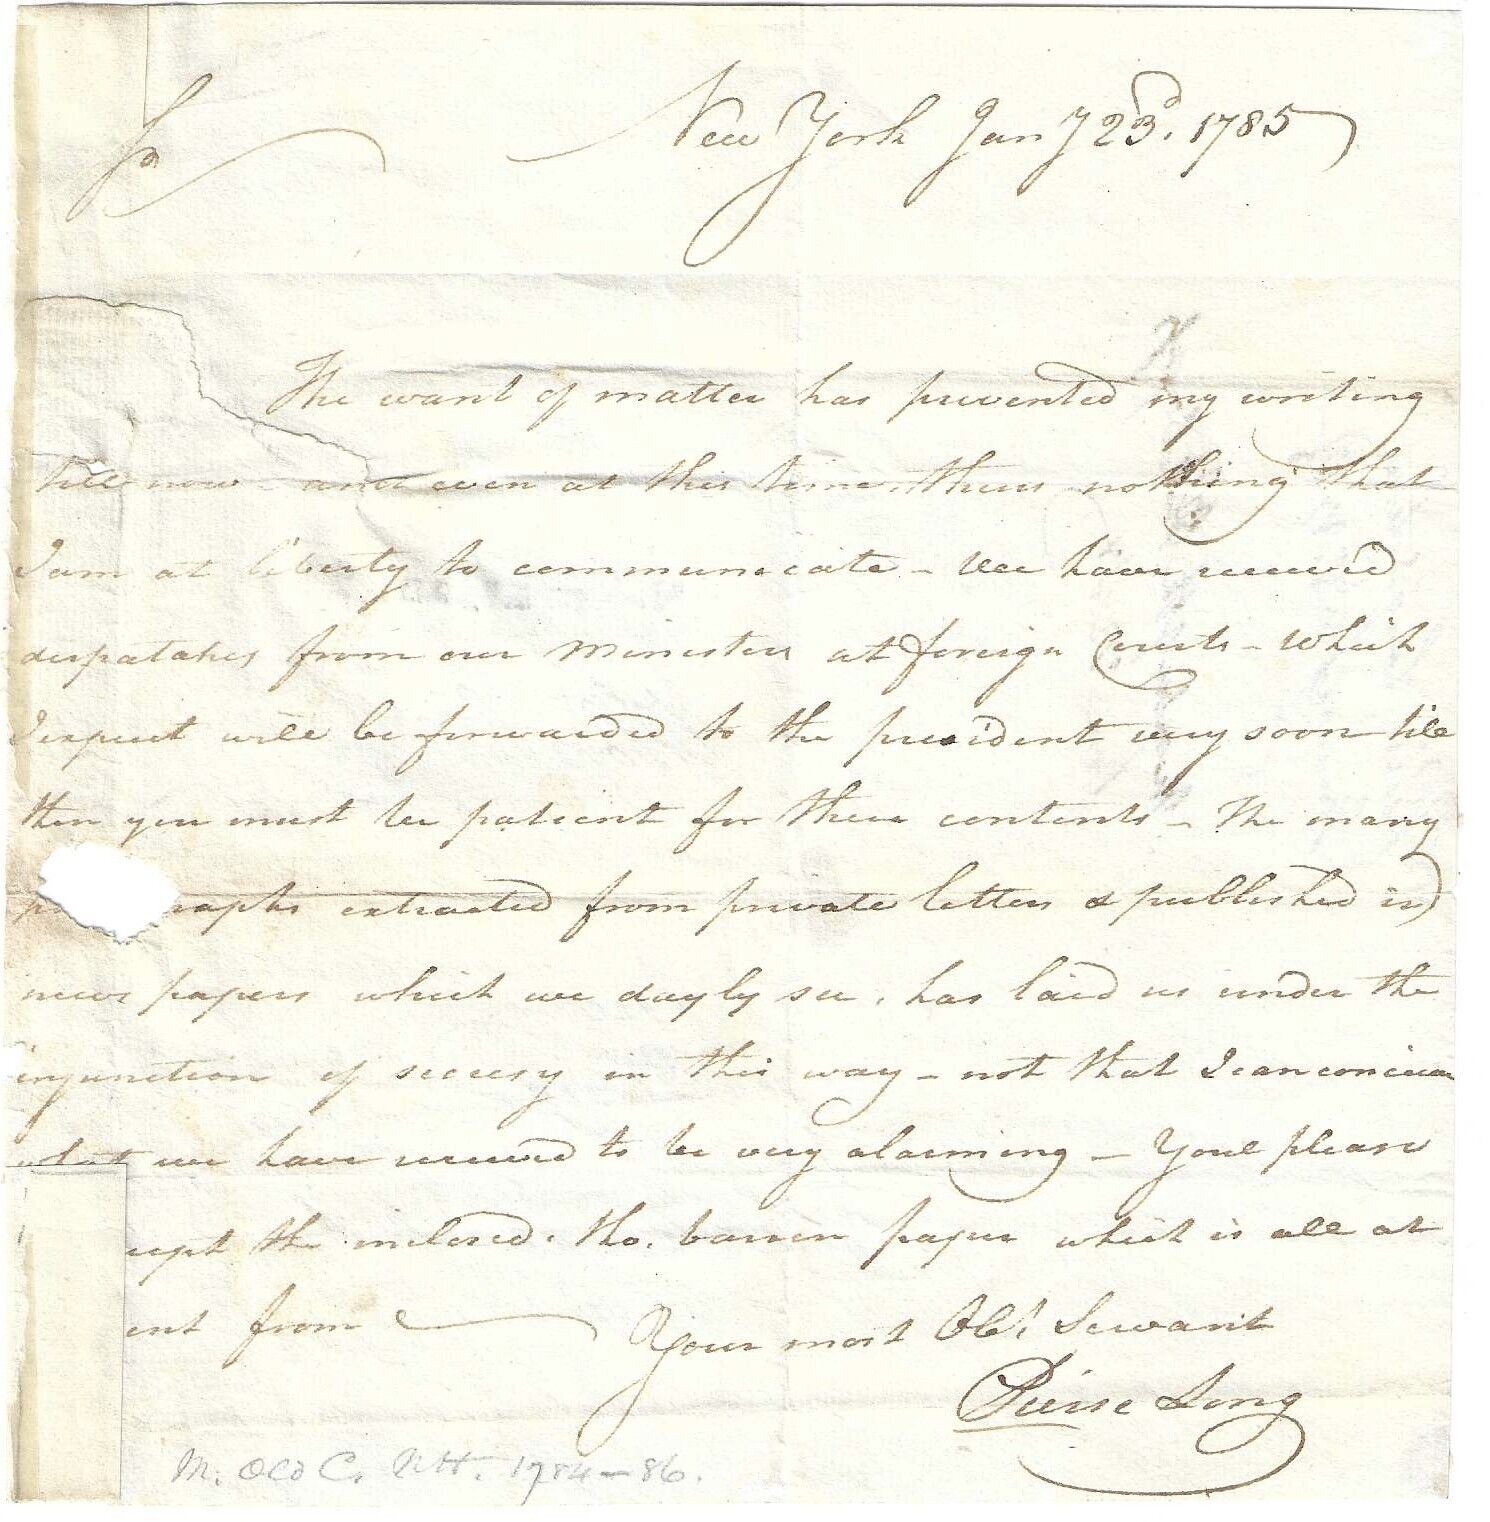 Sr
New York Jany 23d. 1785
The want of matter has prevented my writing
till now - and even at this time, theres nothing that
I am at liberty to communicate - We have receivd
dispatches from our ministers at foreign Courts - which
I expect will be forwarded to the president very soon till
then you must be patient for their contents - The many
raphs extracted from private letters & published in
news papers which we dayly see, has laid us under the
injunction of secresy in this way - not that I can conceive
what we have received to be very alarming - Youl please
cept the inclosed, tho. barren paper which is all at
ent from
Your most Obt Servant
Pierse Long
M. Old C. N.H. 1784-86.